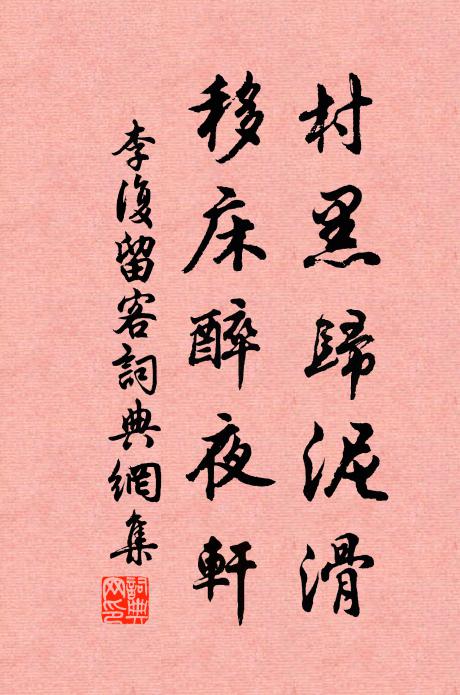 村黑歸泥滑
移床醉夜軒
李復留客詞典網集
詞典網印